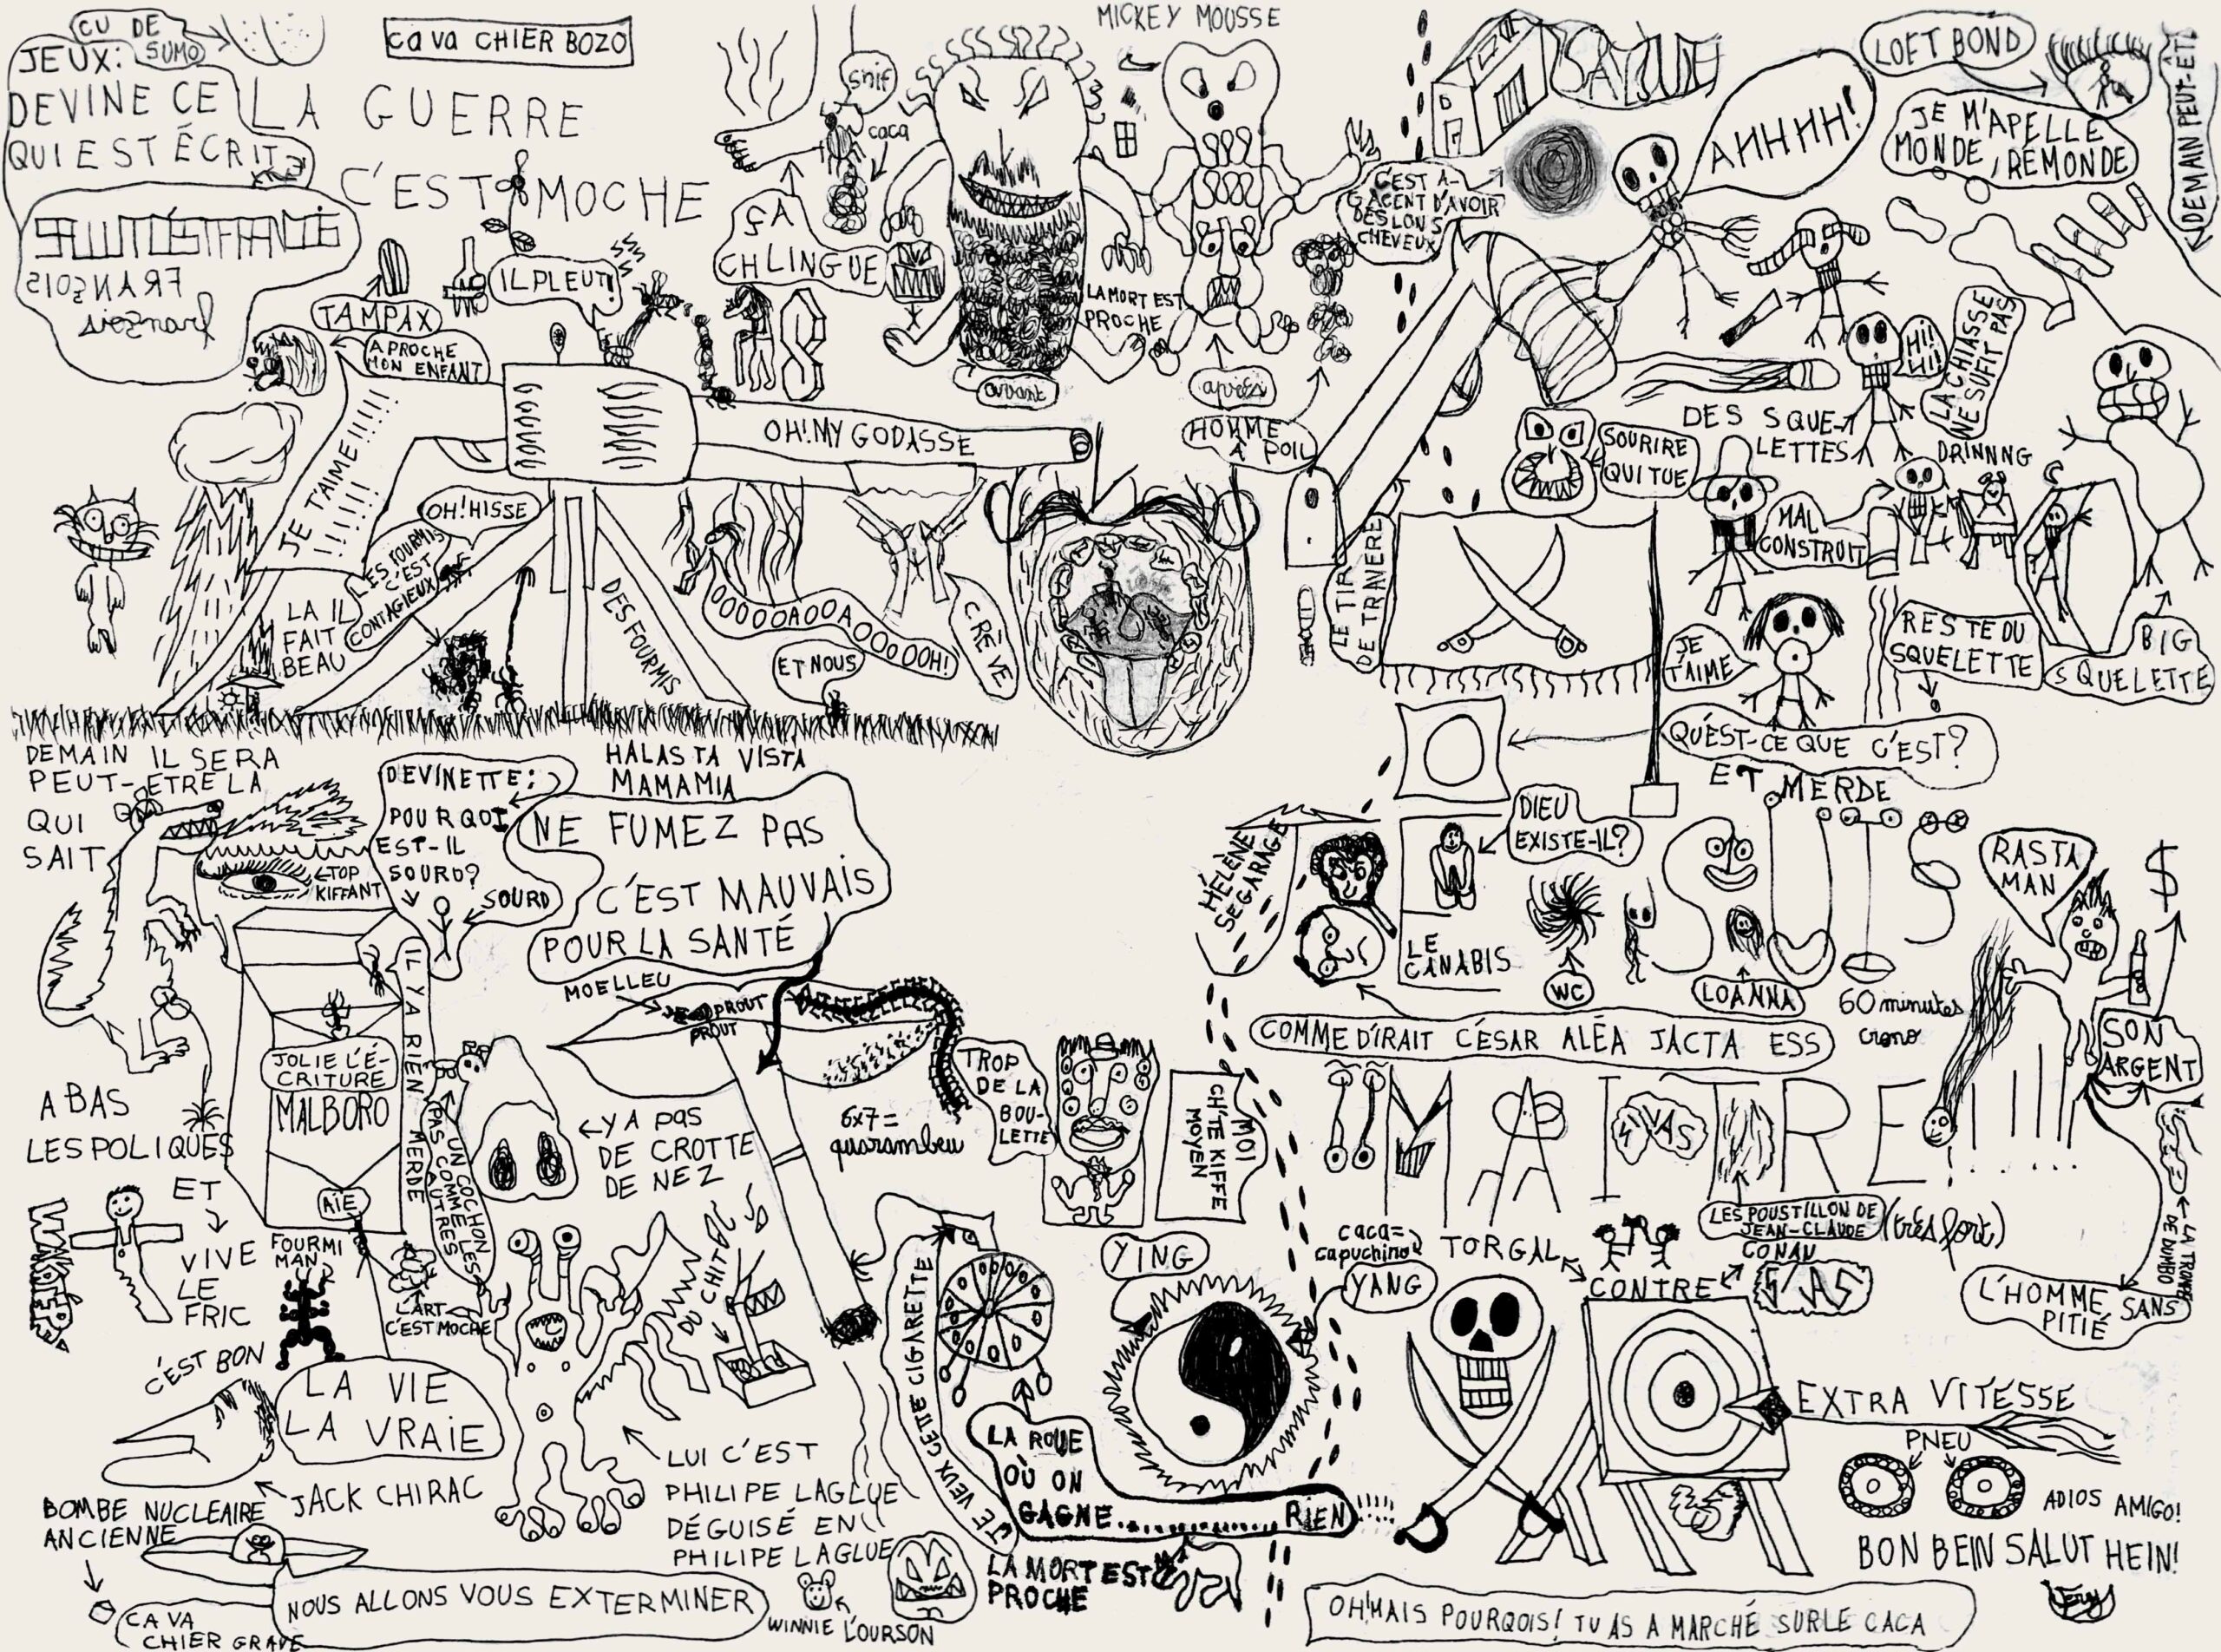 CU DE
SUMO
JEUX:
DEVINE CE
QUI EST ÉCRIT
FRANÇOIS
ca va CHIER BOZO
LA GUERRE
C'EST MOCHE
TAMPAX
APROCHE
MON ENFANT
IL PLEUT!
snif
caca
ÇA
CHLINGUE
MICKEY MOUSSE
LA MORT EST
PROCHE
avant
après
HOMME
À POIL
C'EST A-
GACENT D'AVOIR
DES LONS
CHEVEUX
AHHHH!
LOFT BOND
JE M'APELLE
MONDE, RÉMONDE
DEMAIN PEUT-ÊT
HI!
HI!
LA CHIASSE
NE SUFIT PAS
DES SQUE-
LETTES
DRINNNG
SOURIRE
QUI TUE
MAL
CONSTRUIT
LE TIR
DE TRAVERE
JE
T'AIME
RESTE DU
SQUELETTE
BIG
SQUELETTE
QU'EST-CE QUE C'EST?
JE T'AIME!!!!!
!!!!!!
OH! MY GODASSE
OH! HISSE
LES FOURMIS
C'EST
CONTAGIEUX
LA IL
FAIT
BEAU
DES FOURMIS
OOOOOAOOAOOOOOH!
CRÈVE
ET NOUS
DEMAIN IL SERA
PEUT-ETRE LA
QUI
SAIT
DEVINETTE:
POURQOI
EST-IL
SOURD?
SOURD
TOP
KIFFANT
HALAS TA VISTA
MAMAMIA
NE FUMEZ PAS
C'EST MAUVAIS
POUR LA SANTÉ
MOELLEU
PROUT
PROUT
IL Y A RIEN
MERDE
JOLIE L'É-
CRITURE
MALBORO
AÏE
UN COCHON
PAS COMME LES
AUTRES
Y A PAS
DE CROTTE
DE NEZ
6x7=
quarambeu
TROP
DE LA
BOU-
LETTE
MOI
CH'TE KIFFE
MOYEN
HÉLÈNE
SEGARAGE
DIEU
EXISTE-IL?
LE
CANABIS
WC
LOANNA
ET MERDE
JE SUIS
60 minutes
crono
RASTA
MAN
$
SON
ARGENT
COMME DIRAIT CÉSAR ALÉA JACTA ESS
MAITRE!!!!
LES POUSTILLON DE
JEAN-CLAUDE
(très fort)
LA TROMPE
DE DUMBO
L'HOMME SANS
PITIÉ
A BAS
LES POLIQUES
ET
VIVE
LE
FRIC
FOURMI
MAN
L'ART
C'EST MOCHE
C'EST BON
LA VIE
LA VRAIE
JACK CHIRAC
BOMBE NUCLEAIRE
ANCIENNE
CA VA
CHIER GRAVE
NOUS ALLONS VOUS EXTERMINER
DU CHIT
LUI C'EST
PHILIPE LAGLUE
DÉGUISÉ EN
PHILIPE LAGLUE
WINNIE L'OURSON
JE VEUX CETTE CIGARETTE
LA ROUE
OÙ ON
GAGNE................ RIEN!!!!!
LA MORT EST
PROCHE
YING
YANG
caca=
capuchino
TORGAL
CONTRE
CONAN
EXTRA VITESSE
PNEU
ADIOS AMIGO!
BON BEIN SALUT HEIN!
OH! MAIS POURQOIS! TU AS A MARCHÉ SUR LE CACA